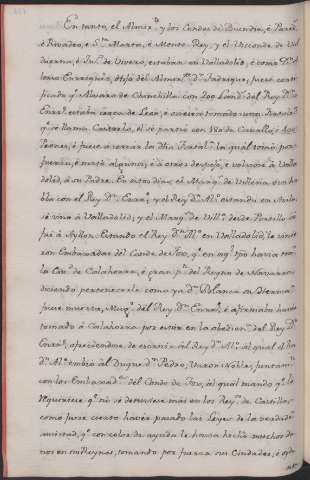 En tanto, el Almir.e y los Condes de Buendia, è Pared.s
è Rivadeo, è S.ta Marta, è Monte-Rey, y el Visconde de Val
duerna, è Ju.o de Vivero, estaban en Valladolid, è como D.n A
lonso Enrriquez, hijo del Almir.te D.n Fadrique, fuese certi
ficado q.e Alvaro de Chinchilla con 200 Lanz.s del Rey D.n
Enrr.e estaba cerca de Leon, è oviesen tomado una
q.e se llama Castrelo, el se partió con 180 de Cavallo, è 400
Peones, è fuese à cercar la dha la qual tomò por
fuerza, è matò algunos, è à otros despojò, è volviose à Valla
dolid, à su Padre. En estos dias, el Marq.s de Villena ovo ha
bla con el Rey D.n Enrr.e, y el Rey D.n Al.o estando en Arevalo
se vino à Valladolid; y el Marq.s de Vill.a desde Portillo se
fuè à Ayllon. Estando el Rey D.n Al.o en Valladolid, le vinie
ron Embaxadores del Conde de Fox, q.e en aq.l tpo havia tom.do
la Ciu.d de Calahorra, è gran p.te del Reyno de Navarra,
diciendo pertenecerle como ya D.a Blanca su Hermana
fuese muerta, Mug.r del Rey D.n Enrr.e è afirmaba haver
tomado à Calahorra por estar en la obedien.a del Rey D.n
Enrr.e, ofreciendose de servir al Rey D.n Al.o al qual el Rey
D.n Al.o embió al Duque D.n Pedro, Varon Noble, juntam.te
con los Embaxad.s del Conde de Fox, al qual mandò q.e le
requiriese q.e no se detuviese mas en los Rey.s de Castilla,
como fuese cierto haver pasado las Leyes de la verdadera
amistad, q.e con color de ayuda le havia hecho muchos da
nos en sus Reynos, tomando por fuerza sus Ciudades, è